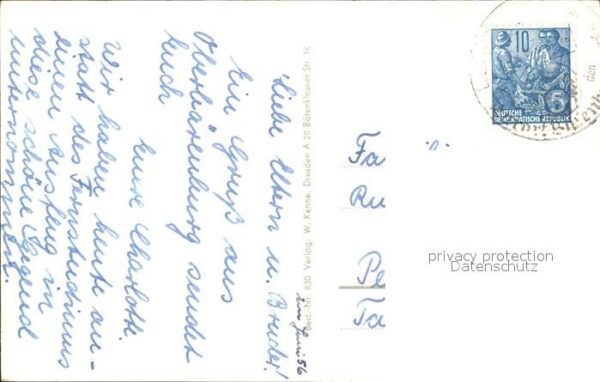 im Juni 56
Liebe Eltern u. Bruder!
Ein Gruß aus
Oberbärenburg sendet
Euch
Eure Charlotte.
Wir haben heute an-
statt des Fernstudiums
einen Ausflug in
diese schöne Gegend
unternommen.
Best.-Nr. 830 Verlag: W. Kenne, Dresden A 20 Bärenklauser Str. 1c
10
5
DEUTSCHE
DEMOKRATISCHE REPUBLIK
Fa
Ru
Pe
Ta
privacy protection
Datenschutz